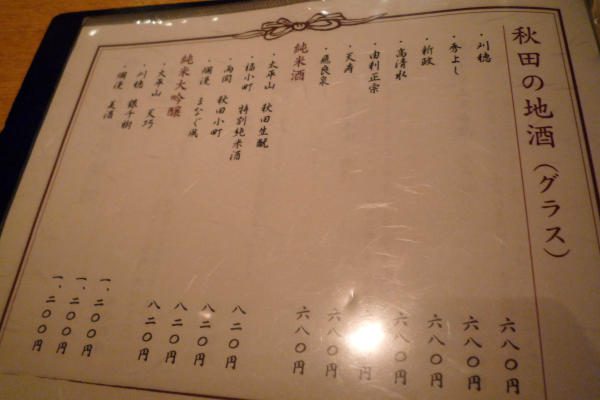 秋田の地酒(グラス)
・刈穂 六八〇円
・秀よし 六八〇円
・新政 六八〇円
・高清水 六八〇円
・由利正宗 六八〇円
・天寿 六八〇円
・飛良泉 六八〇円
純米酒
・太平山 秋田生酛 八二〇円
・福小町 特別純米酒 八二〇円
・両関 秋田小町 八二〇円
・爛漫 まなぐ凧 八二〇円
純米大吟醸
・太平山 天巧 一、二〇〇円
・刈穂 銀千樹 一、二〇〇円
・爛漫 美酒 一、二〇〇円